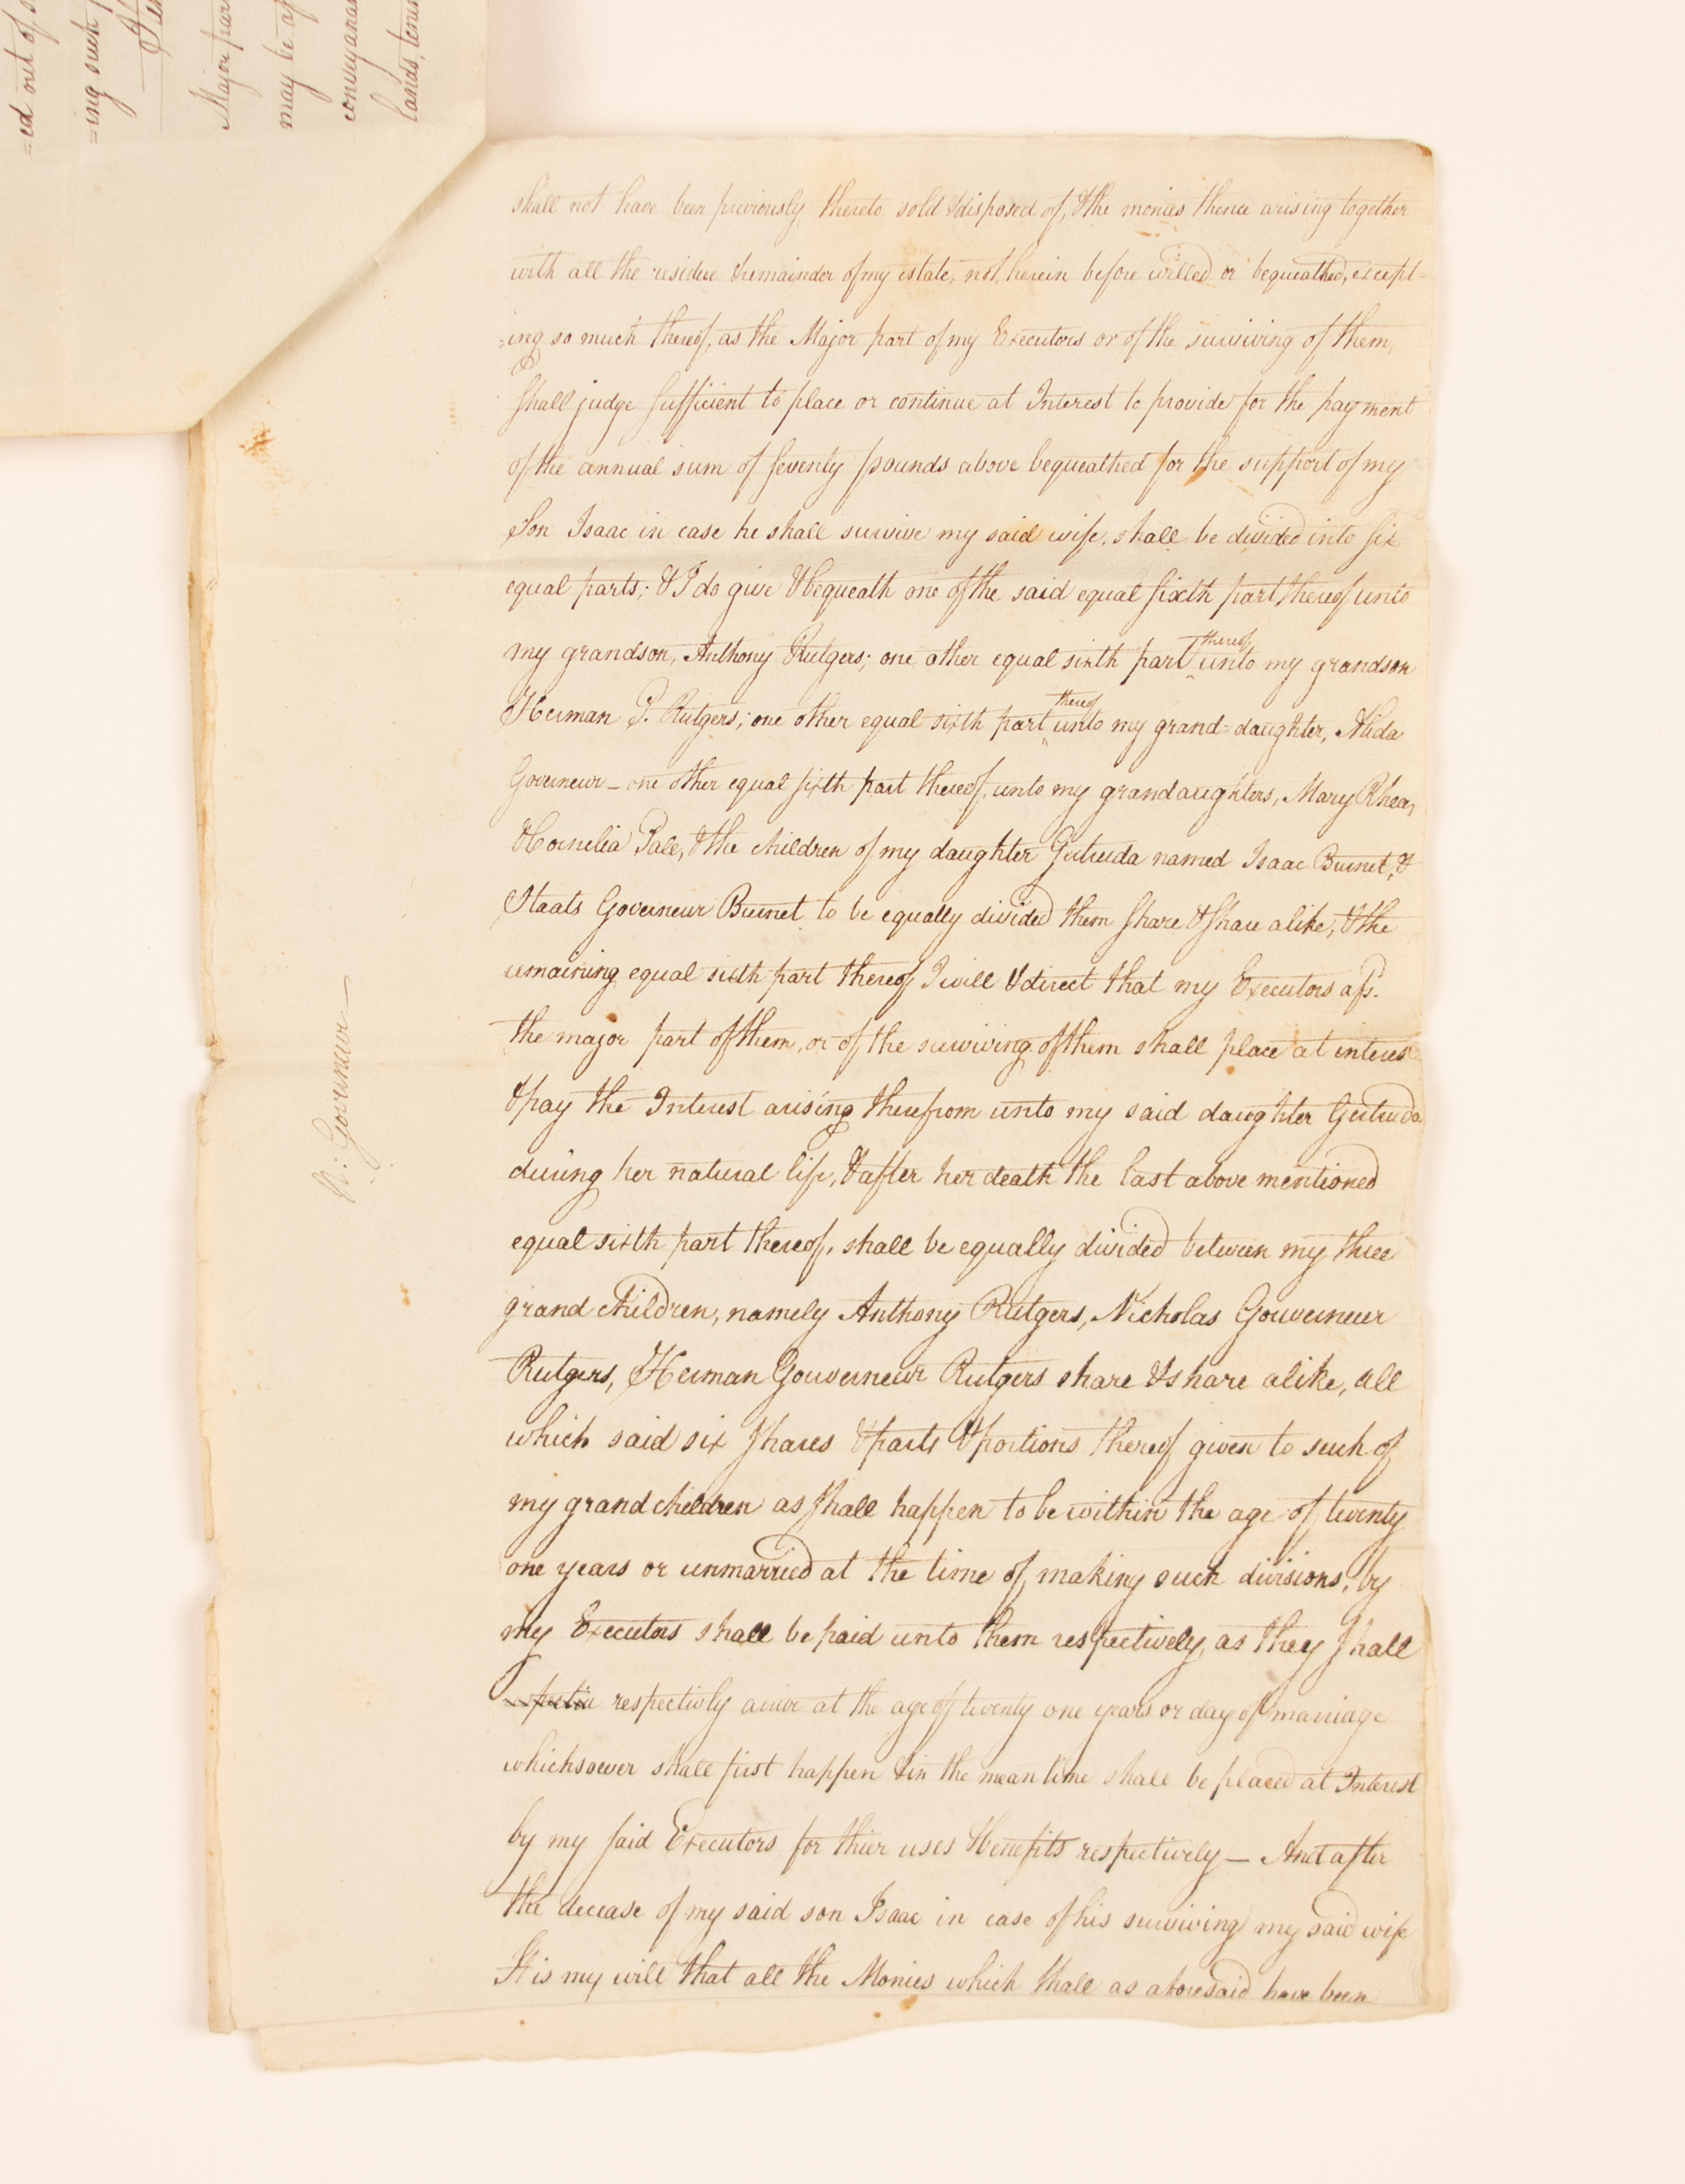 =ed out of
=ing such
Major par
may be
conveyan
lands, tene
shall not have been previously thereto sold & disposed of, & the monies thence arising together
with all the residue & remainder of my estate, not herein before willed or bequeathed, except=
=ing so much thereof, as the Major part of my Executors or of the surviving of them,
shall judge sufficient to place or continue at Interest to provide for the payment
of the annual sum of seventy pounds above bequeathed for the support of my
Son Isaac in case he shall survive my said wife, shall be divided into six
equal parts; & I do give & bequeath one of the said equal sixth part thereof unto
my grandson, Anthony Rutgers; one other equal sixth part thereof unto my grandson
Herman G. Rutgers; one other equal sixth part thereof unto my grand=daughter, Alida
Governeur – one other equal sixth part thereof, unto my grandaughters, Mary Rhea,
& Cornelia Pall, & the children of my daughter Gertruda named Isaac Burnet, &
Staats Governeur Burnet to be equally divided them share & share alike, & the
remaining equal sixth part thereof I will & direct that my Executors afs.
the major part of them, or of the surviving of them shall place at interest
& pay the Interest arising therefrom unto my said daughter Gertruda
during her natural life, & after her death the last above mentioned
equal sixth part thereof, shall be equally divided between my three
grand children, namely Anthony Rutgers, Nicholas Gouverneur
Rutgers, Herman Gouverneur Rutgers share & share alike, all
which said six shares & parts & portions thereof given to such of
my grand children as shall happen to be within the age of twenty
one years or unmarried at the time of making such divisions, by
my Executors shall be paid unto them respectively, as they shall
respectivly arive at the age of twenty one years or day of marriage
whichsoever shall first happen & in the mean time shall be placed at Interest
by my said Executors for thier uses & benefits respectively – And after
the decease of my said son Isaac in case of his surviving my said wife
It is my will that all the Monies which shall as aforesaid have been
N: Gouverneur –